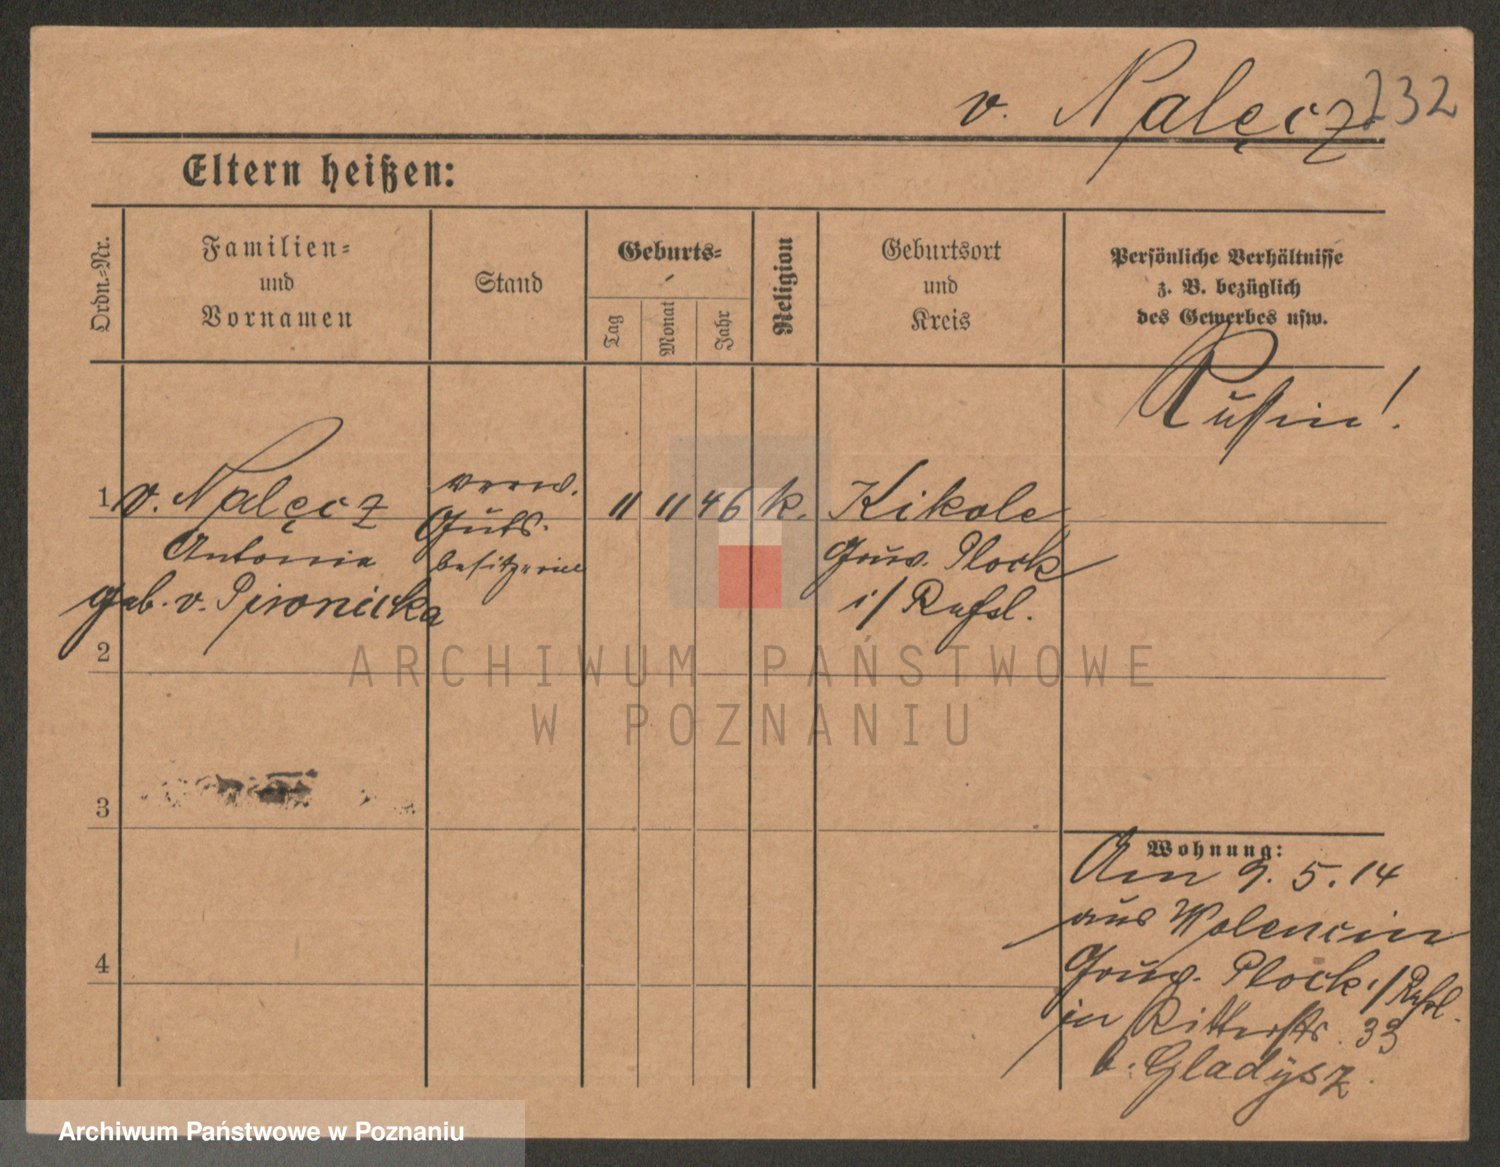 v. Nalęcz
232
Eltern heißen:
Ordn.=Nr.
Familien=
und
Vornamen
Stand
Geburts=
Tag
Monat
Jahr
Religion
Geburtsort
und
Kreis
Persönliche Verhältnisse
z. B. bezüglich
des Gewerbes usw.
Russin!
1 v. Nalęcz verw. 11 11 46 k. Kikole
Antonie Guts- Gouv. Plock
geb. v. besitzerin i/ Rußl.
2
ARCHIWUM PAŃSTWOWE
W POZNANIU
3
Wohnung:
Am 9. 5. 14
aus
4
Gouv. Plock i/ Rußl.
in Ritterstr. 33
b. Gladysz.
Archiwum Państwowe w Poznaniu